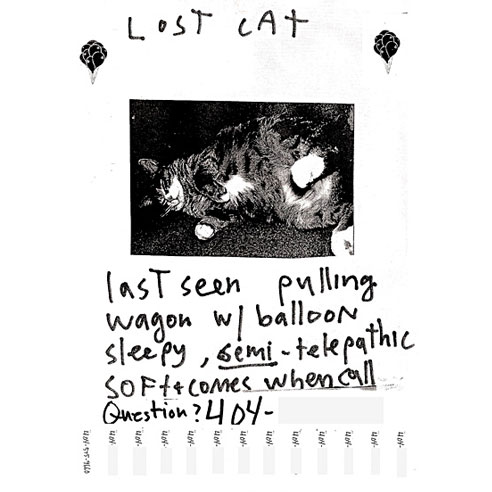 LOST CAT
last seen pulling
wagon w/ balloon
sleepy, semi-telepathic
soft + comes when call
Question? 404-